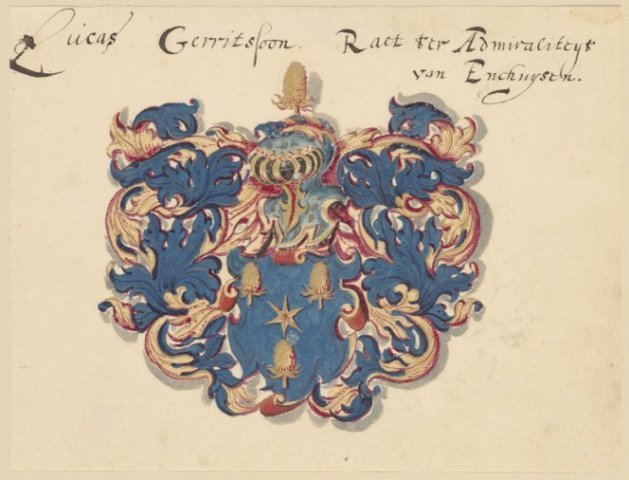 Lucas Gerritsoon. Raet ter Admiraliteyt
van Enchuysen.